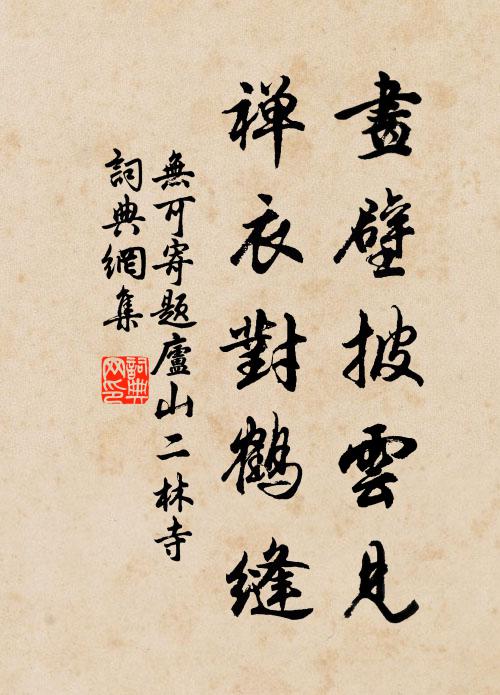 畫壁披雲見
禪衣對鶴縫
無可寄題廬山二林寺
詞典網集
詞典網印